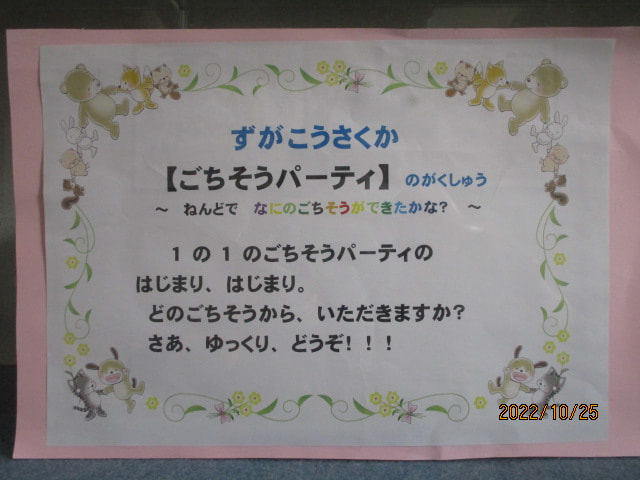 ずがこうさくか
【ごちそうパーティ】 のがくしゅう
～ ねんどで なにのごちそうができたかな？ ～
１ の １ のごちそうパーティの
はじまり、はじまり。
どのごちそうから、いただきますか？
さあ、ゆっくり、どうぞ！！！
2022/10/25